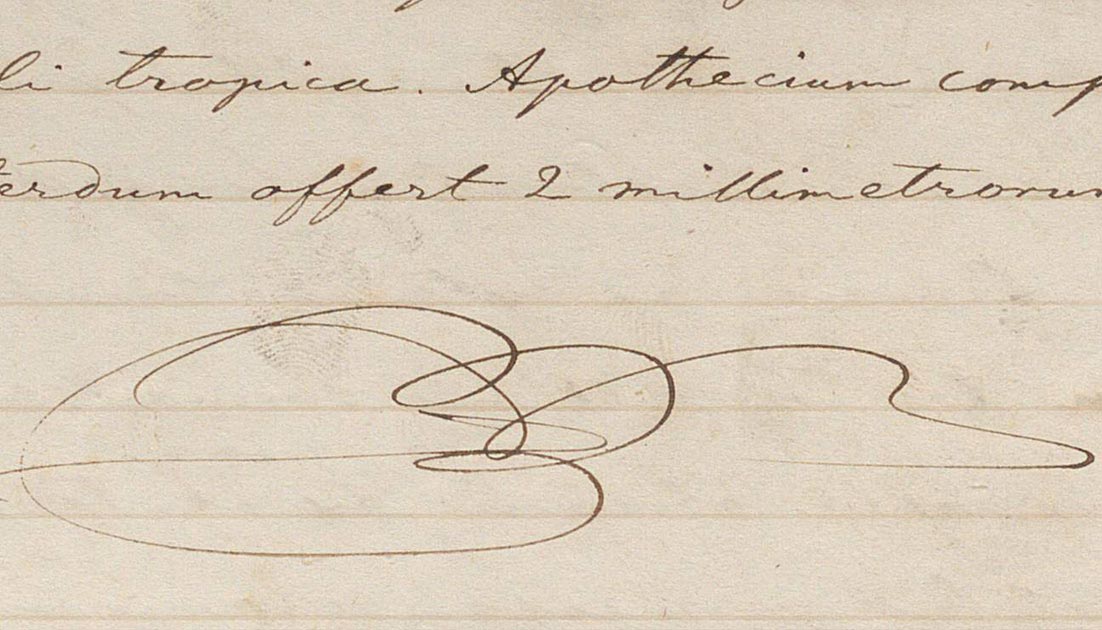 li tropica. Apothecium comp
terdum offert 2 millimetrorum